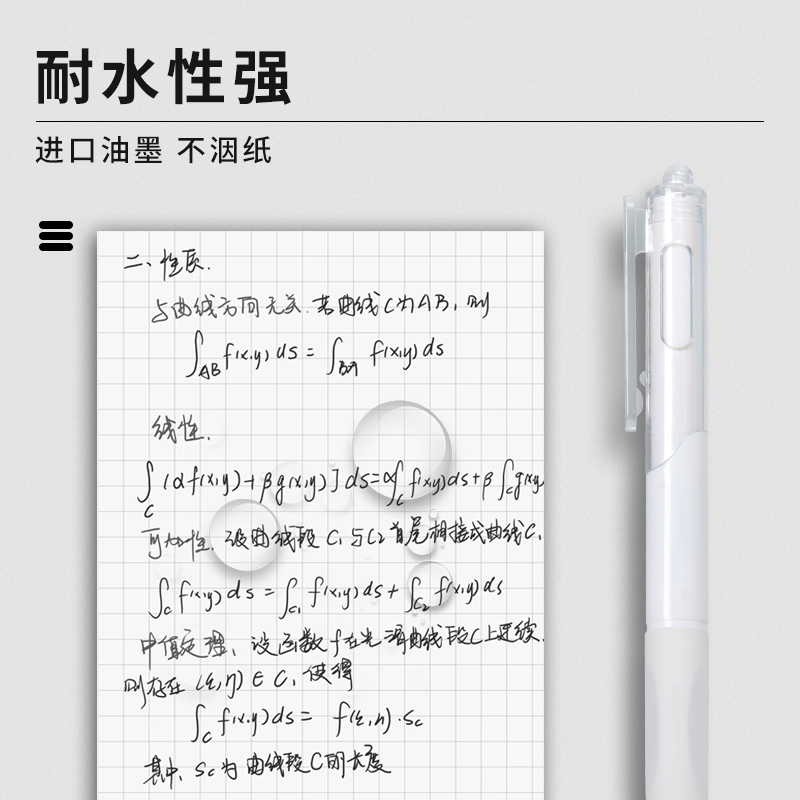 耐水性强
进口油墨 不洇纸
二、性质.
与曲线方向无关.若曲线C为AB,则
∫AB f(x,y) ds = ∫BA f(x,y) ds
线性.
∫C (αf(x,y)+βg(x,y)]ds=α∫C f(x,y)ds+β∫C g(x,y
可加性.设曲线段C1与C2首尾相接成曲线C,
∫C f(x,y)ds = ∫C1 f(x,y)ds+ ∫C2 f(x,y)ds
中值定理,设函数f在光滑曲线段C上连续.
则存在 (ξ,η) ∈ C, 使得
∫C f(x,y)ds= f(ξ,η)·Sc
其中,Sc为曲线段C的长度